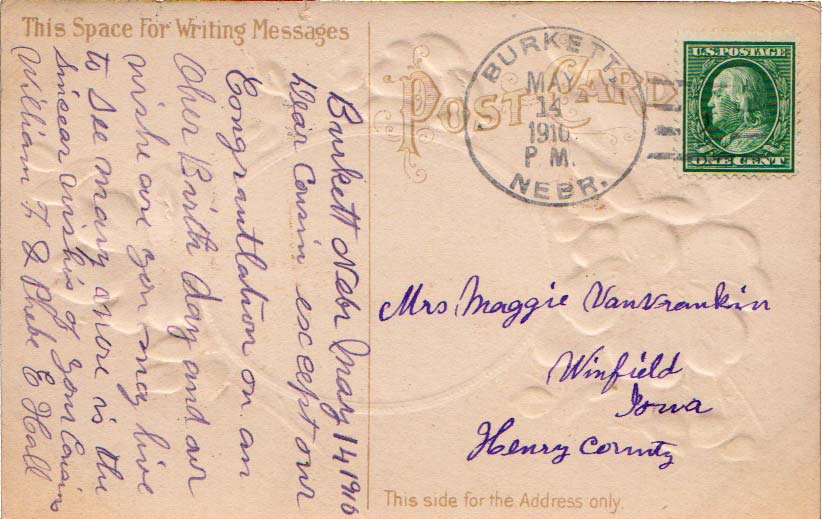 This Space For Writing Messages
Burkett Nebr May 14, 1910
Dear Cousin except our
Congrautlation on an
Oher Birth day and our
wishe are you may live
to see many more is the
sincear wish is of your Cousins
William T & Phebe E Hall
POST CARD
BURKETT,
MAY
14
1910
P M.
NEBR.
U.S. POSTAGE
ONE CENT
Mrs Maggie VanVrankin
Winfield
Iowa
Henry County
This side for the Address only.